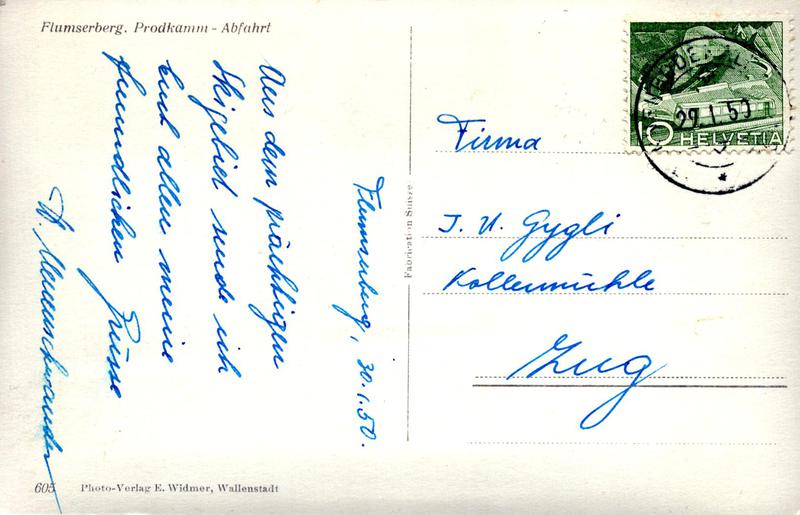 Flumserberg. Prodkamm - Abfahrt
Flumserberg, 30.1.50.
Aus dem prächtigen
Skigebiet sende ich
Euch allen meine
freundlichen Grüsse
Fabrication Suisse
Firma
J. U. Gygli
Kollermühle
Zug
HELVETIA
1.50
605 Photo-Verlag E. Widmer, Wallenstadt